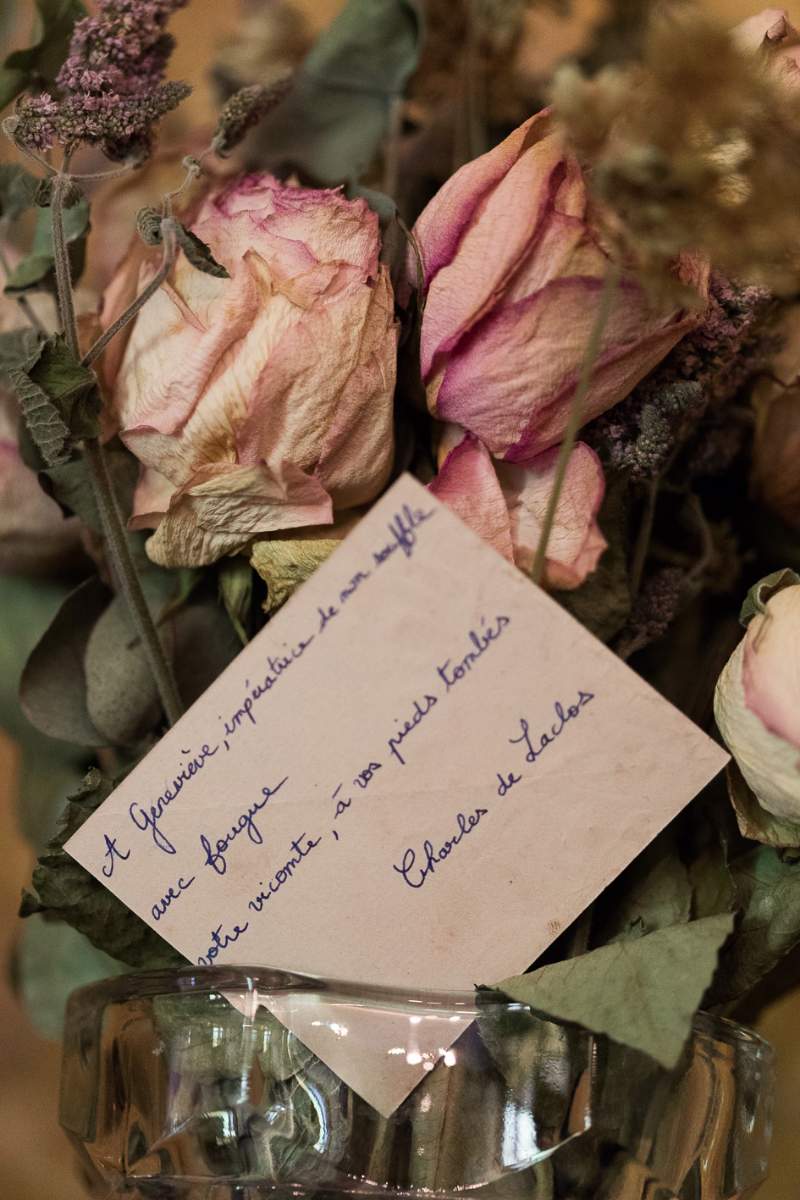 A Geneviève, impératrice de mon souffle
avec fougue
votre vicomte, à vos pieds tombés
Charles de Laclos